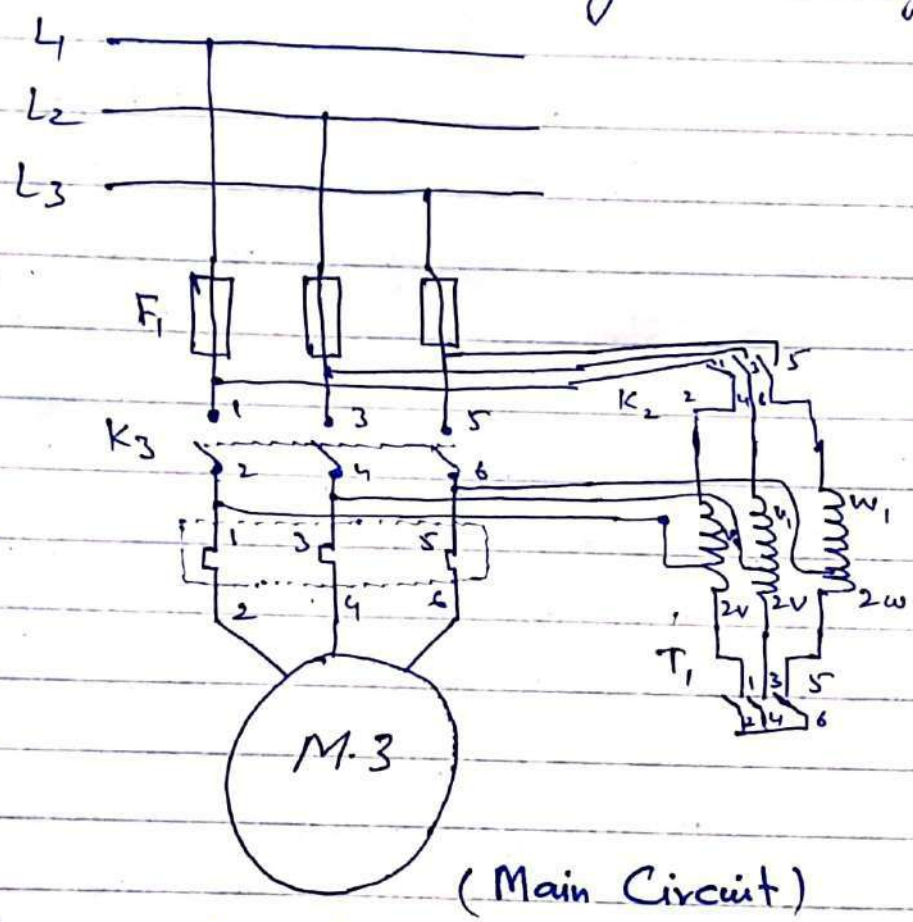 L1
L2
L3
F1
1 3 5
K3
2 4 6
1 3 5
2 4 6
M.3
K2
1 3 5
2 4 6
V1 W1
2V 2V 2W
T1
1 3 5
2 4 6
(Main Circuit)